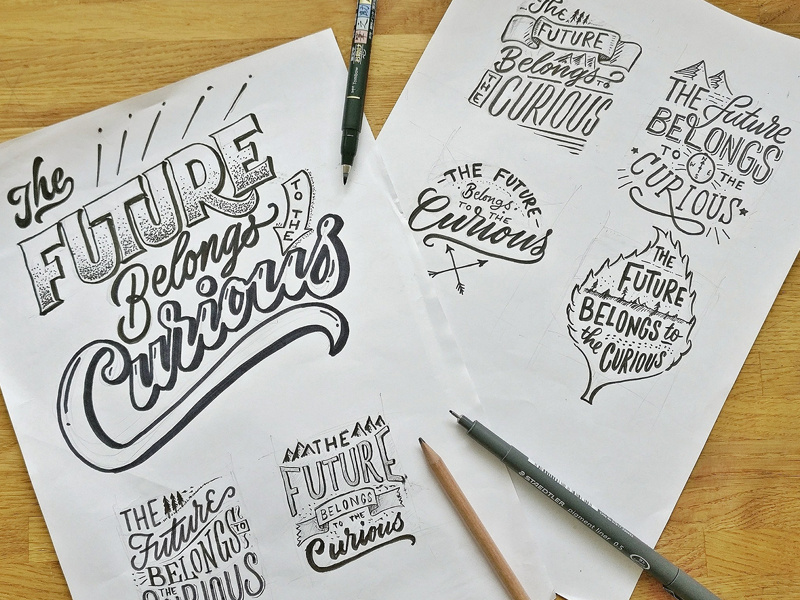 The
FUTURE
Belongs
TO THE
Curious
THE
Future
BELONGS
TO
THE
CURIOUS
THE
FUTURE
BELONGS
TO THE
Curious
The
FUTURE
Belongs TO
THE
CURIOUS
THE future
BELONGS
TO THE
CURIOUS
THE FUTURE
Belongs
TO THE
Curious
THE
FUTURE
BELONGS to
the CURIOUS
STAEDTLER pigment liner 0.5